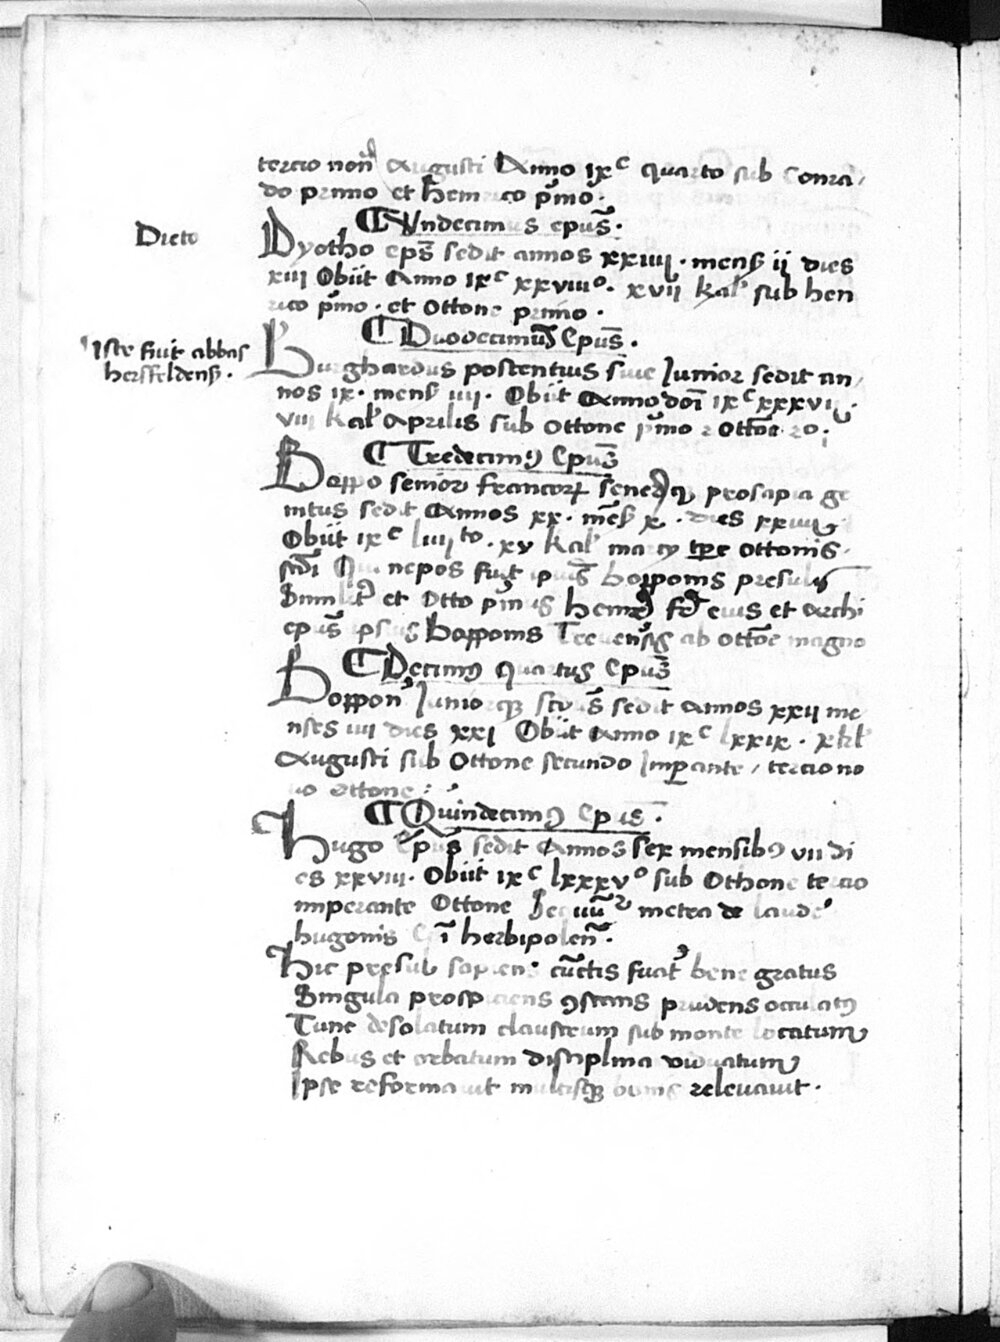 tercio non̄ Augusti Anno ixᶜ quarto sub Conra
do primo et Heinrico p̄mo.
¶ Undecimus ep̄us.
Dieto
Dyotho ep̄s sedit annos xxiiii. mens̄ ii dies
xiii Obiit Anno ixᶜ xxviiiiº. xvii kal̄ sub hen
rico p̄mo. et Ottone primo.
¶ Duodecimus Ep̄us.
Iste fuit abbas
hersfeldens̄.
Burghardus postentius siue Junior sedit an
nos ix. mens̄ iiii. Obiit Anno dn̄i ixᶜ xxxvii.
viii kal̄ Aprilis sub Ottone p̄mo
¶ Tredecimꝰ Ep̄us
Boppo senior francorꝝ prosapia ge
nitus sedit Annos xx. mēs̄ x. dies xxiiii
Obiit ixᶜ liiiiᵗᵒ. xv kal̄ marcij tp̄re Ottonis
scd̄i Qui nepos fuit p̄mi Bopponis presulis
Simlit̄ et Otto p̄mus Henrꝰ fr̄ eius et Archi
ep̄us ipsius Bopponis Treuens̄is ab ottōe magno
¶ Decimꝰ Quartus Ep̄us
Boppon̄ Junior sedit Annos xxii me
nses iiii dies xxi Obiit Anno ixᶜ lxxxix. xkl̄
Augusti sub Ottone secundo Imꝑante / tercio no
uo Ottone
¶ Quindecimꝰ Ep̄us.
Hugo Ep̄us sedit Annos sex mensibꝰ vii di
es xxviii. Obiit ixᶜ lxxxvº sub Othone tercio
imperante Ottone Sequūt̄ metra de laude
hugonis Ep̄i herbipolen̄.
Hic presul sapiens. cūctis fuat̄ bene gratus
Singula prospiciens ꝯstans prudens oculatꝰ
Tunc desolatum claustrum sub monte locatum
Rebus et orbatum disciplina viduatum
Ipse reformauit multisqꝫ bonis releuauit.